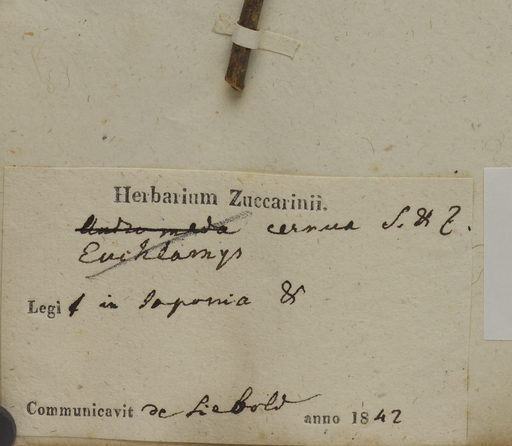 Herbarium Zuccarinii.
Andromeda cernua S. & Z.
Legi in Japonia &
Communicavit de Siebold anno 1842